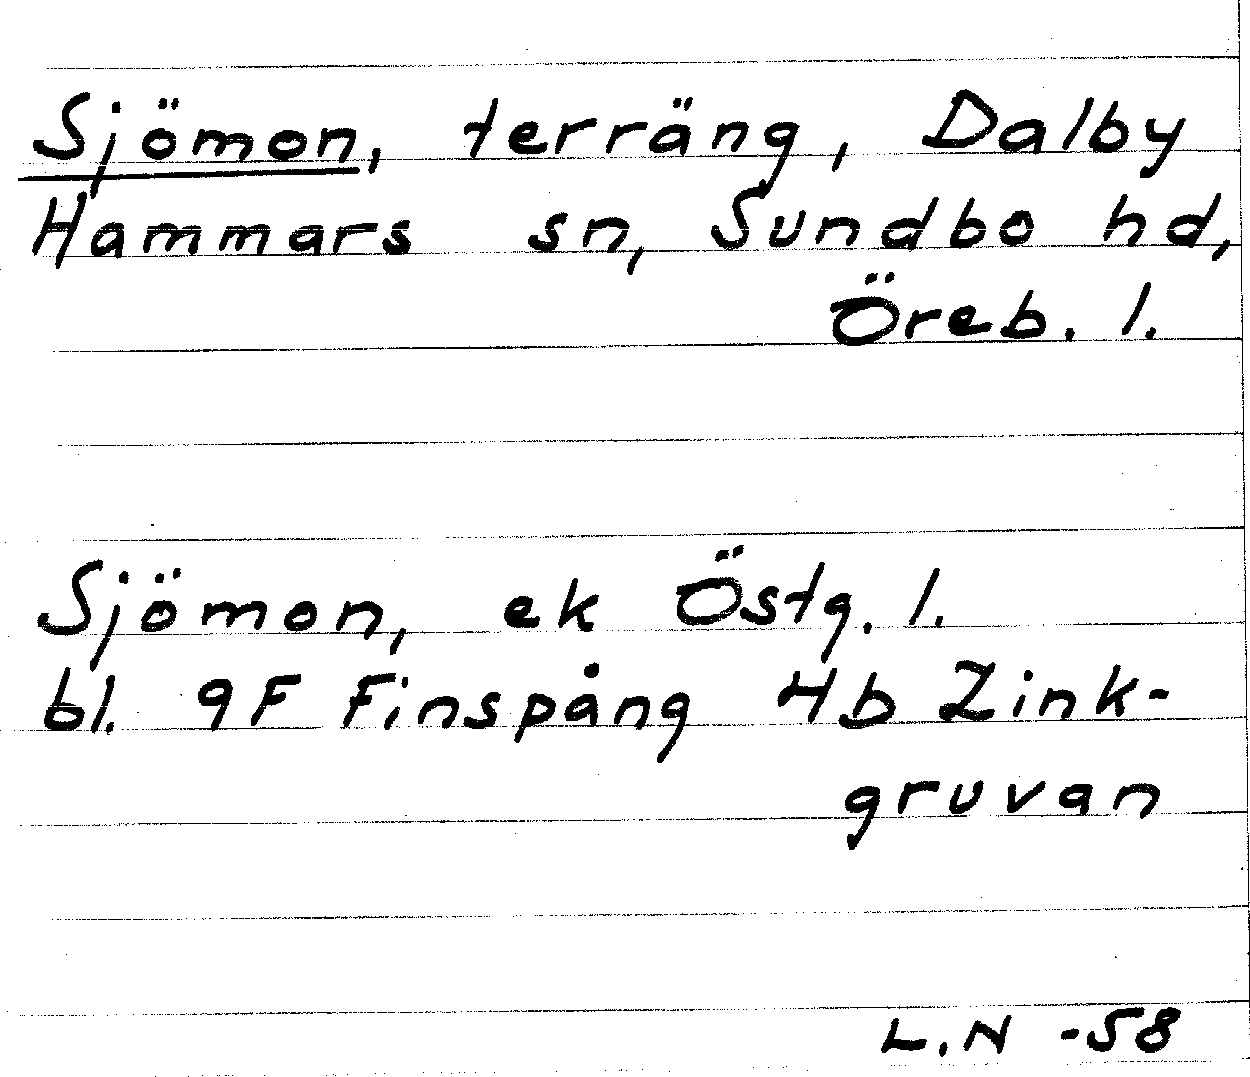 Sjömon, terräng, Dalby
Hammars sn, Sundbo hd,
Öreb. l.
Sjömon, ek Östg. l.
bl. 9F Finspång 4b Zink-
gruvan
L.N -58